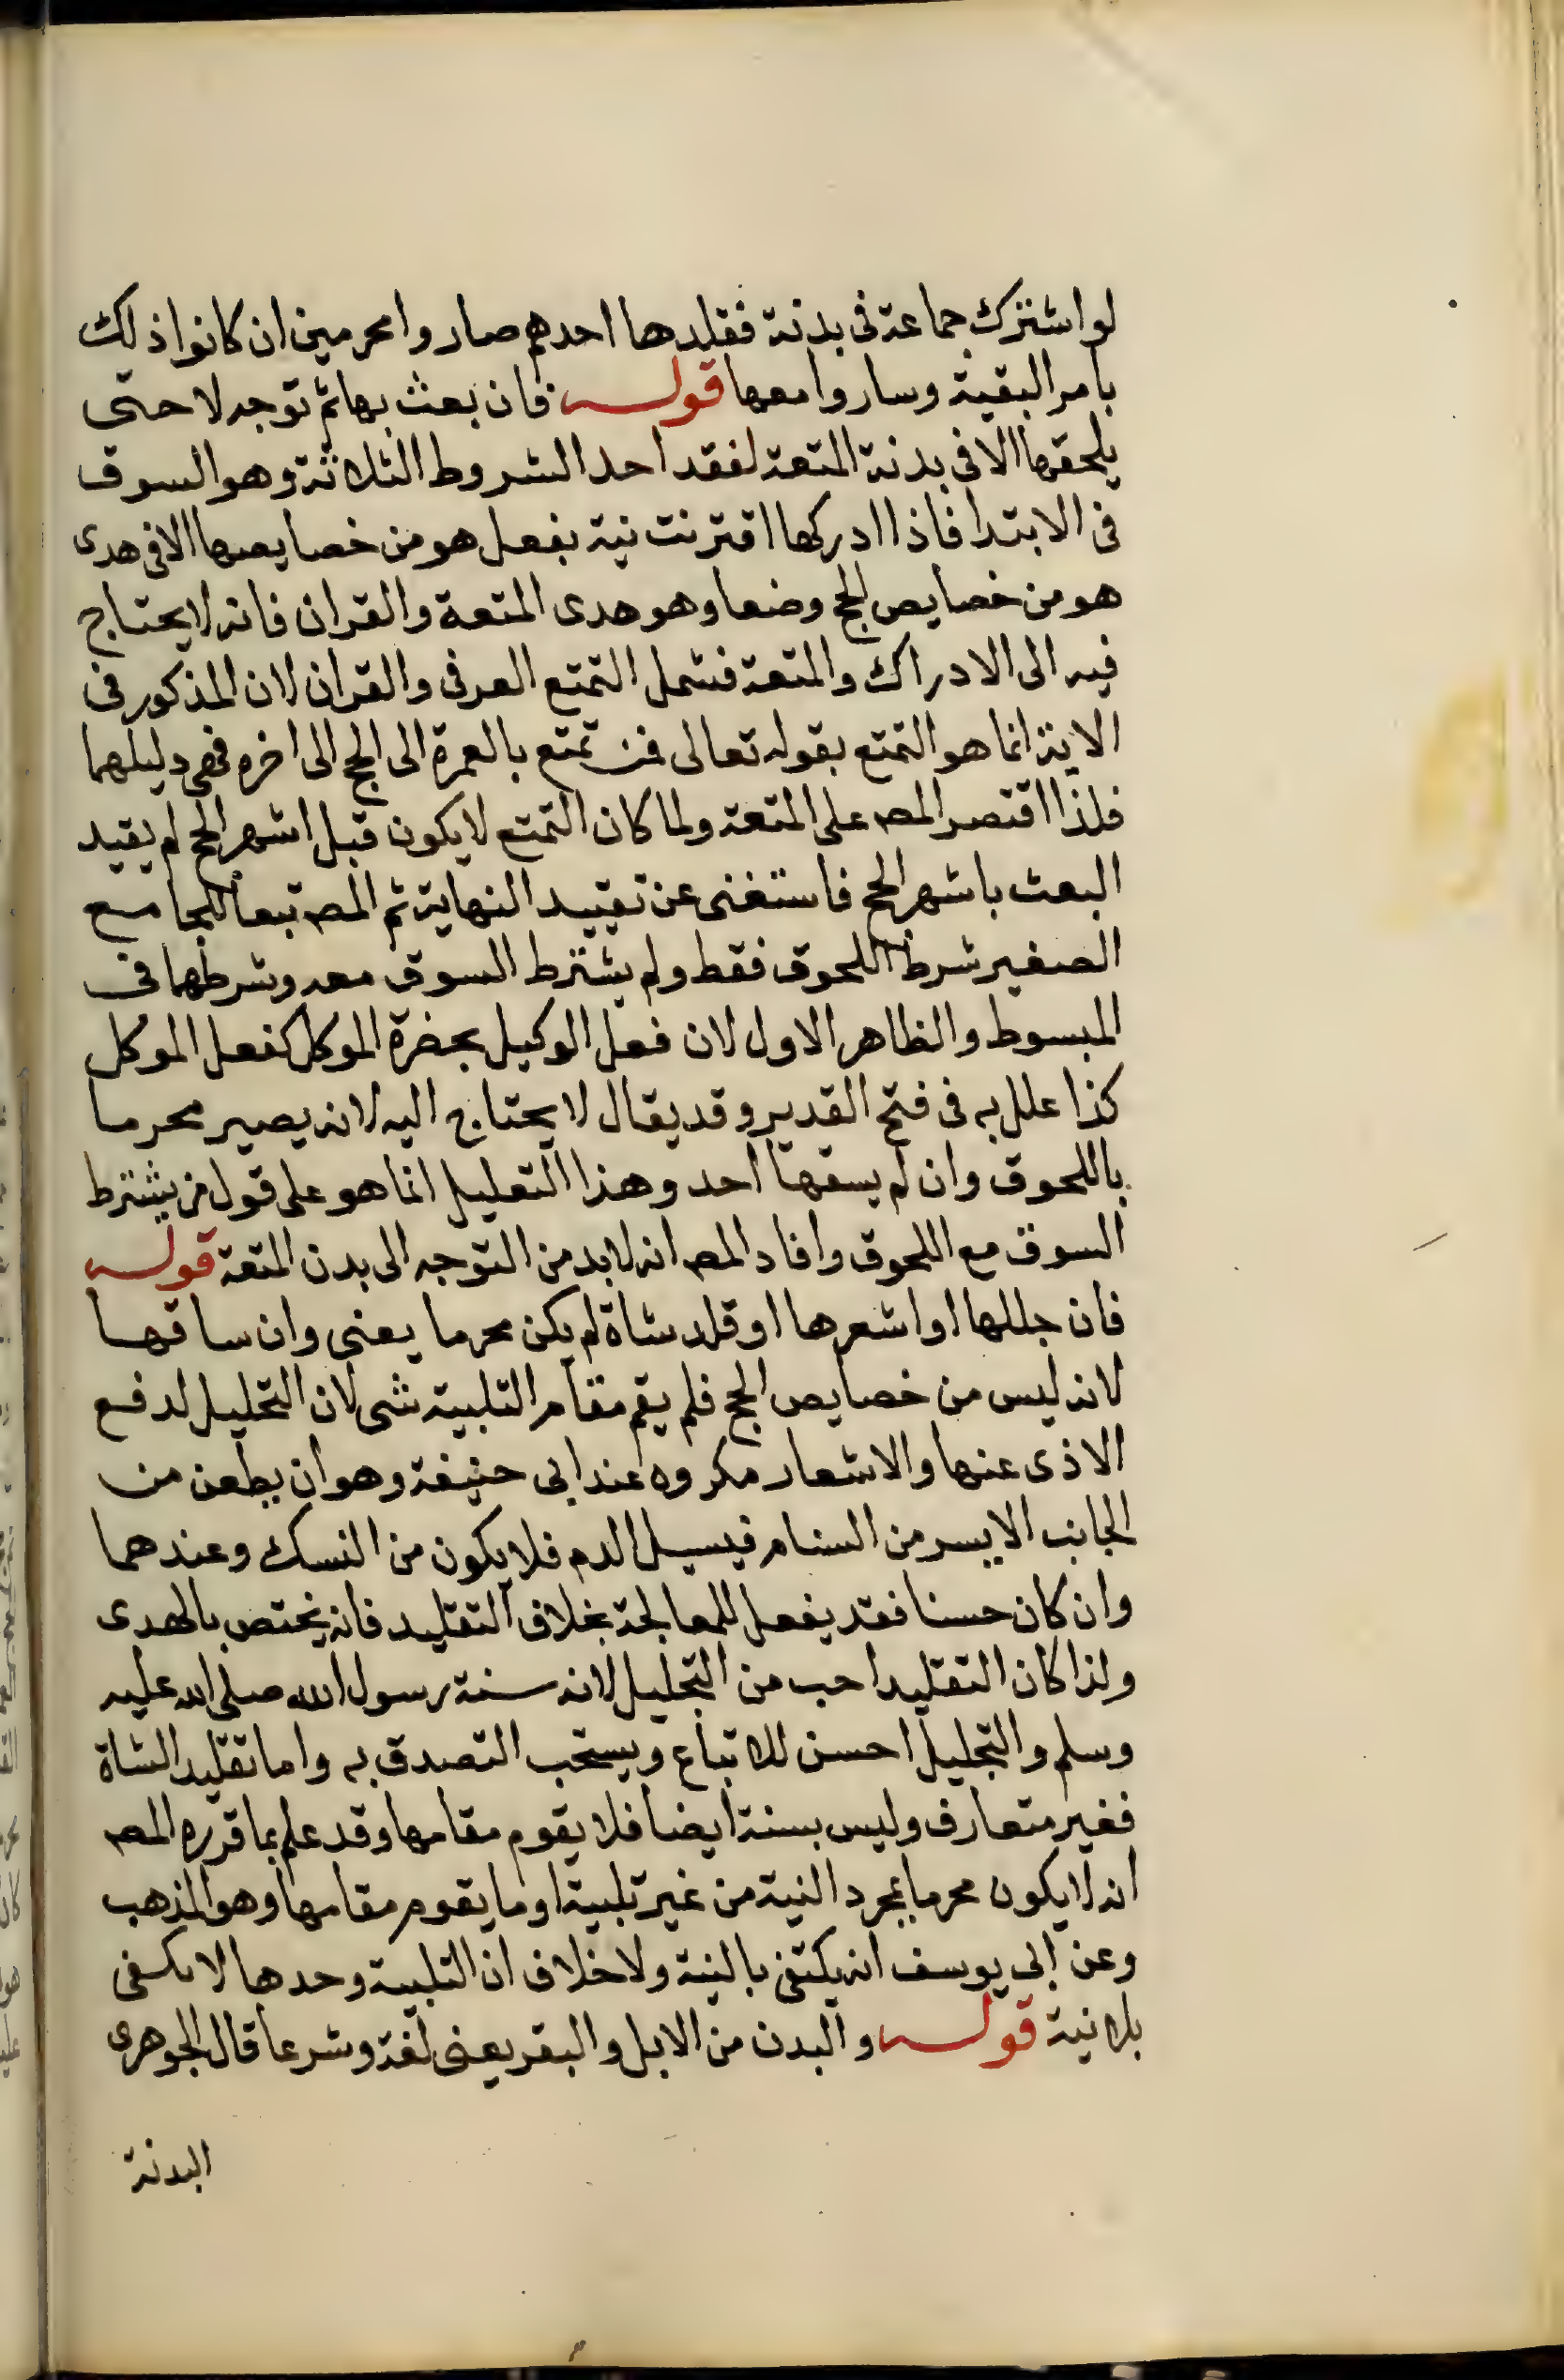 لو اشترك جماعة فى بدنة فقلدها احدهم صاروا محرمين ان كانوا ذلك
بامر البقية وساروا معها قوله فان بعث بها ثم توجه لا حتى
يلحقها الا فى بدنة المتعة لفقد احد الشروط الثلاثة وهو السوق
فى الابتدا فاذا ادركها اقترنت نيته بفعل هو من خصايصها الا فى هدى
هو من خصايص الحج وضعا وهو هدى المتعة والقران فانه لا يحتاج
فيه الى الادراك والمتعة فشمل التمتع العرفى والقران لان المذكور فى
الاية انما هو التمتع بقوله تعالى فمن تمتع بالعمرة الى الحج الى اخره فهى دليلهما
فلذا اقتصر المصـ على المتعة ولما كان التمتع لا يكون قبل اشهر الحج لم يقيد
البعث باشهر الحج فاستغنى عن تقييد النهاية ثم المصـ تبعا للجامع
الصغير شرط اللحوق فقط ولم يشترط السوق معه وشرطهما فى
المبسوط والظاهر الاول لان فعل الوكيل بحضرة الموكل كفعل الموكل
كذا علل به فى فتح القدير وقد يقال لا يحتاج اليه لانه يصير محرما
باللحوق وان لم يسقها احد وهذا التعليل انما هو على قول من يشترط
السوق مع اللحوق وافاد المصـ انه لا بد من التوجه الى بدن المتعة قوله
فان جللها او اشعرها او قلد شاة لم يكن محرما يعنى وان ساقها
لانه ليس من خصايص الحج فلم يقم مقام التلبية شى لان التجليل لدفع
الاذى عنها والاشعار مكروه عند ابى حنيفة وهو ان يطعن من
الجانب الايسر من السنام فيسيل الدم فلا يكون من النسك وعندهما
وان كان حسنا فقد يفعل للمعالجة بخلاف التقليد فانه يختص بالهدى
ولذا كان التقليد احب من التجليل لانه سنة رسول الله صلى الله عليه
وسلم والتجليل احسن للاتباع ويستحب التصدق به واما تقليد الشاة
فغير متعارف وليس بسنة ايضا فلا يقوم مقامها وقد علم بما قرره المصـ
انه لا يكون محرما بمجرد النية من غير تلبية او ما يقوم مقامها وهو المذهب
وعن ابى يوسف انه يكتفى بالنية ولا خلاف ان التلبية وحدها لا تكفى
بلا نية قوله والبدن من الابل والبقر يعنى لغة وشرعا قال الجوهرى
البدنة